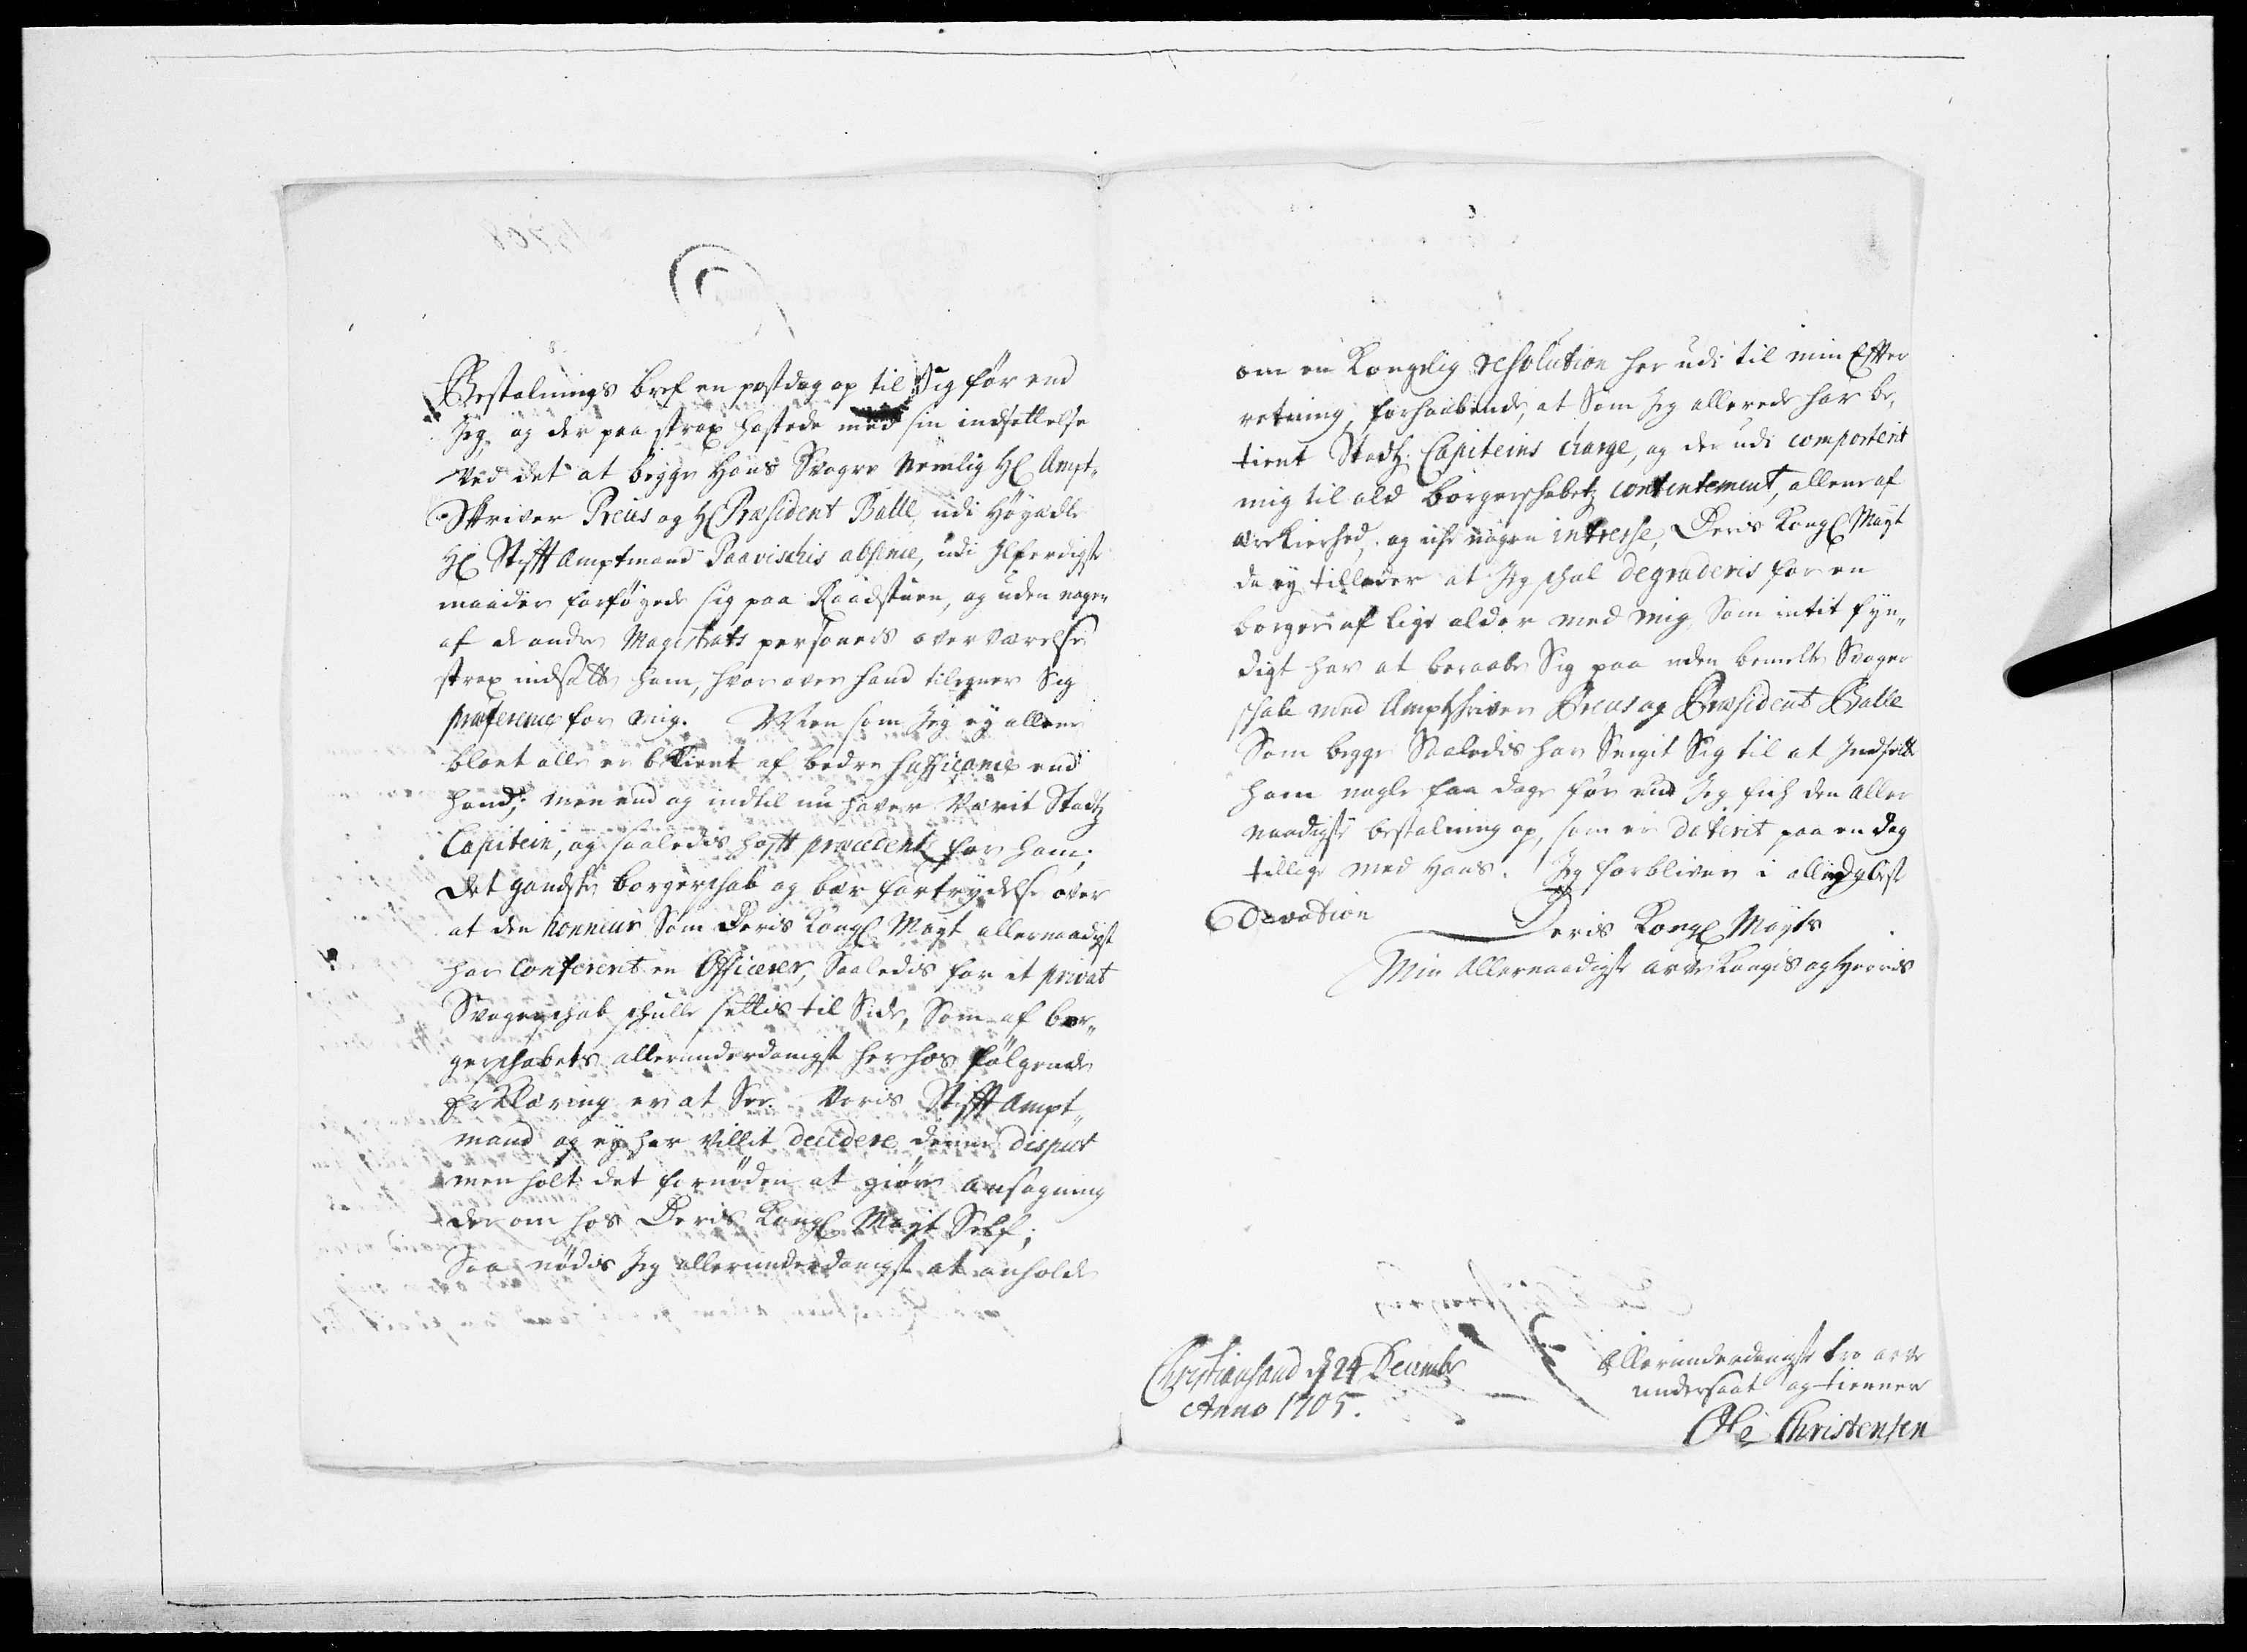 Bestalnings bref en postdag op til Sig før end
Jeg, og der paa strax hastede med sin indsettelse
Ved det at begge Hans Svogre Nemlig H: Ampt-
Skriver Preus og H: Præsident Balle, udi Høyædle
H: Stifft Amptmand Paavischis absence, udi Ilferdigste
maader forføyede sig paa Raadstuen, og uden nogen
af de andre Magistrats personers overværelse
strax indsatte ham, hvorover hand tilegner Sig
præference for mig. Men som Jeg ey allene
blant alle er bekient af bedre suffisance end
hand, men end og indtil nu haver Værit Stadtz
Capitein, og saaledis hafft præcedentz for ham;
Det gandske borgerschab og bær fortrydelse over
at den honneur Som Deris Kongl Mayt allernaadigst
har Conferert en Officerer, Saaledis for et privat
Svogerschab schulle settis til Side, Som af bor-
gerschabets allerunderdanigst herhos følgende
Erklæring er at See. Voris Stifft Ampt-
mand og ey har Villit decidere denne disput
men holt det fornøden at giøre ansøgning
der om hos Deris Kongl Mayt Self;
Saa nødis Jeg allerunderdanigst at anholde
om en Kongelig resolution her udi til min Effter
retning, forhaabende, at Som Jeg allerede har be-
tient Stadtz Capiteins charge, og der udi comportert
mig til ald borgerschabetz contentement, allene af
ærekierhed, og icke nogen intresse, Deris Kongl Mayt
da ey tillader at Jeg schal degraderis for en
borger af lige alder med mig, Som intit fyn-
digt har at beraabe Sig paa uden bemelte Svoger
schab med Amptskriver Preus og Præsident Balle
Som begge Saaledis har Svigit Sig til at Indsette
ham nogle faa dage før end Jeg fick den Aller
naadigste bestalning op, som er daterit paa en dag
tillige med Hans. Jeg forbliver i
Devotion
Deris Kongl Mayts
Min Allernaadigste arve Kongis og Herris
Christiansand d 24 Decembr
Anno 1705.
Allerunderdanigste tro arve
undersaat og tienner
Ole Christensen